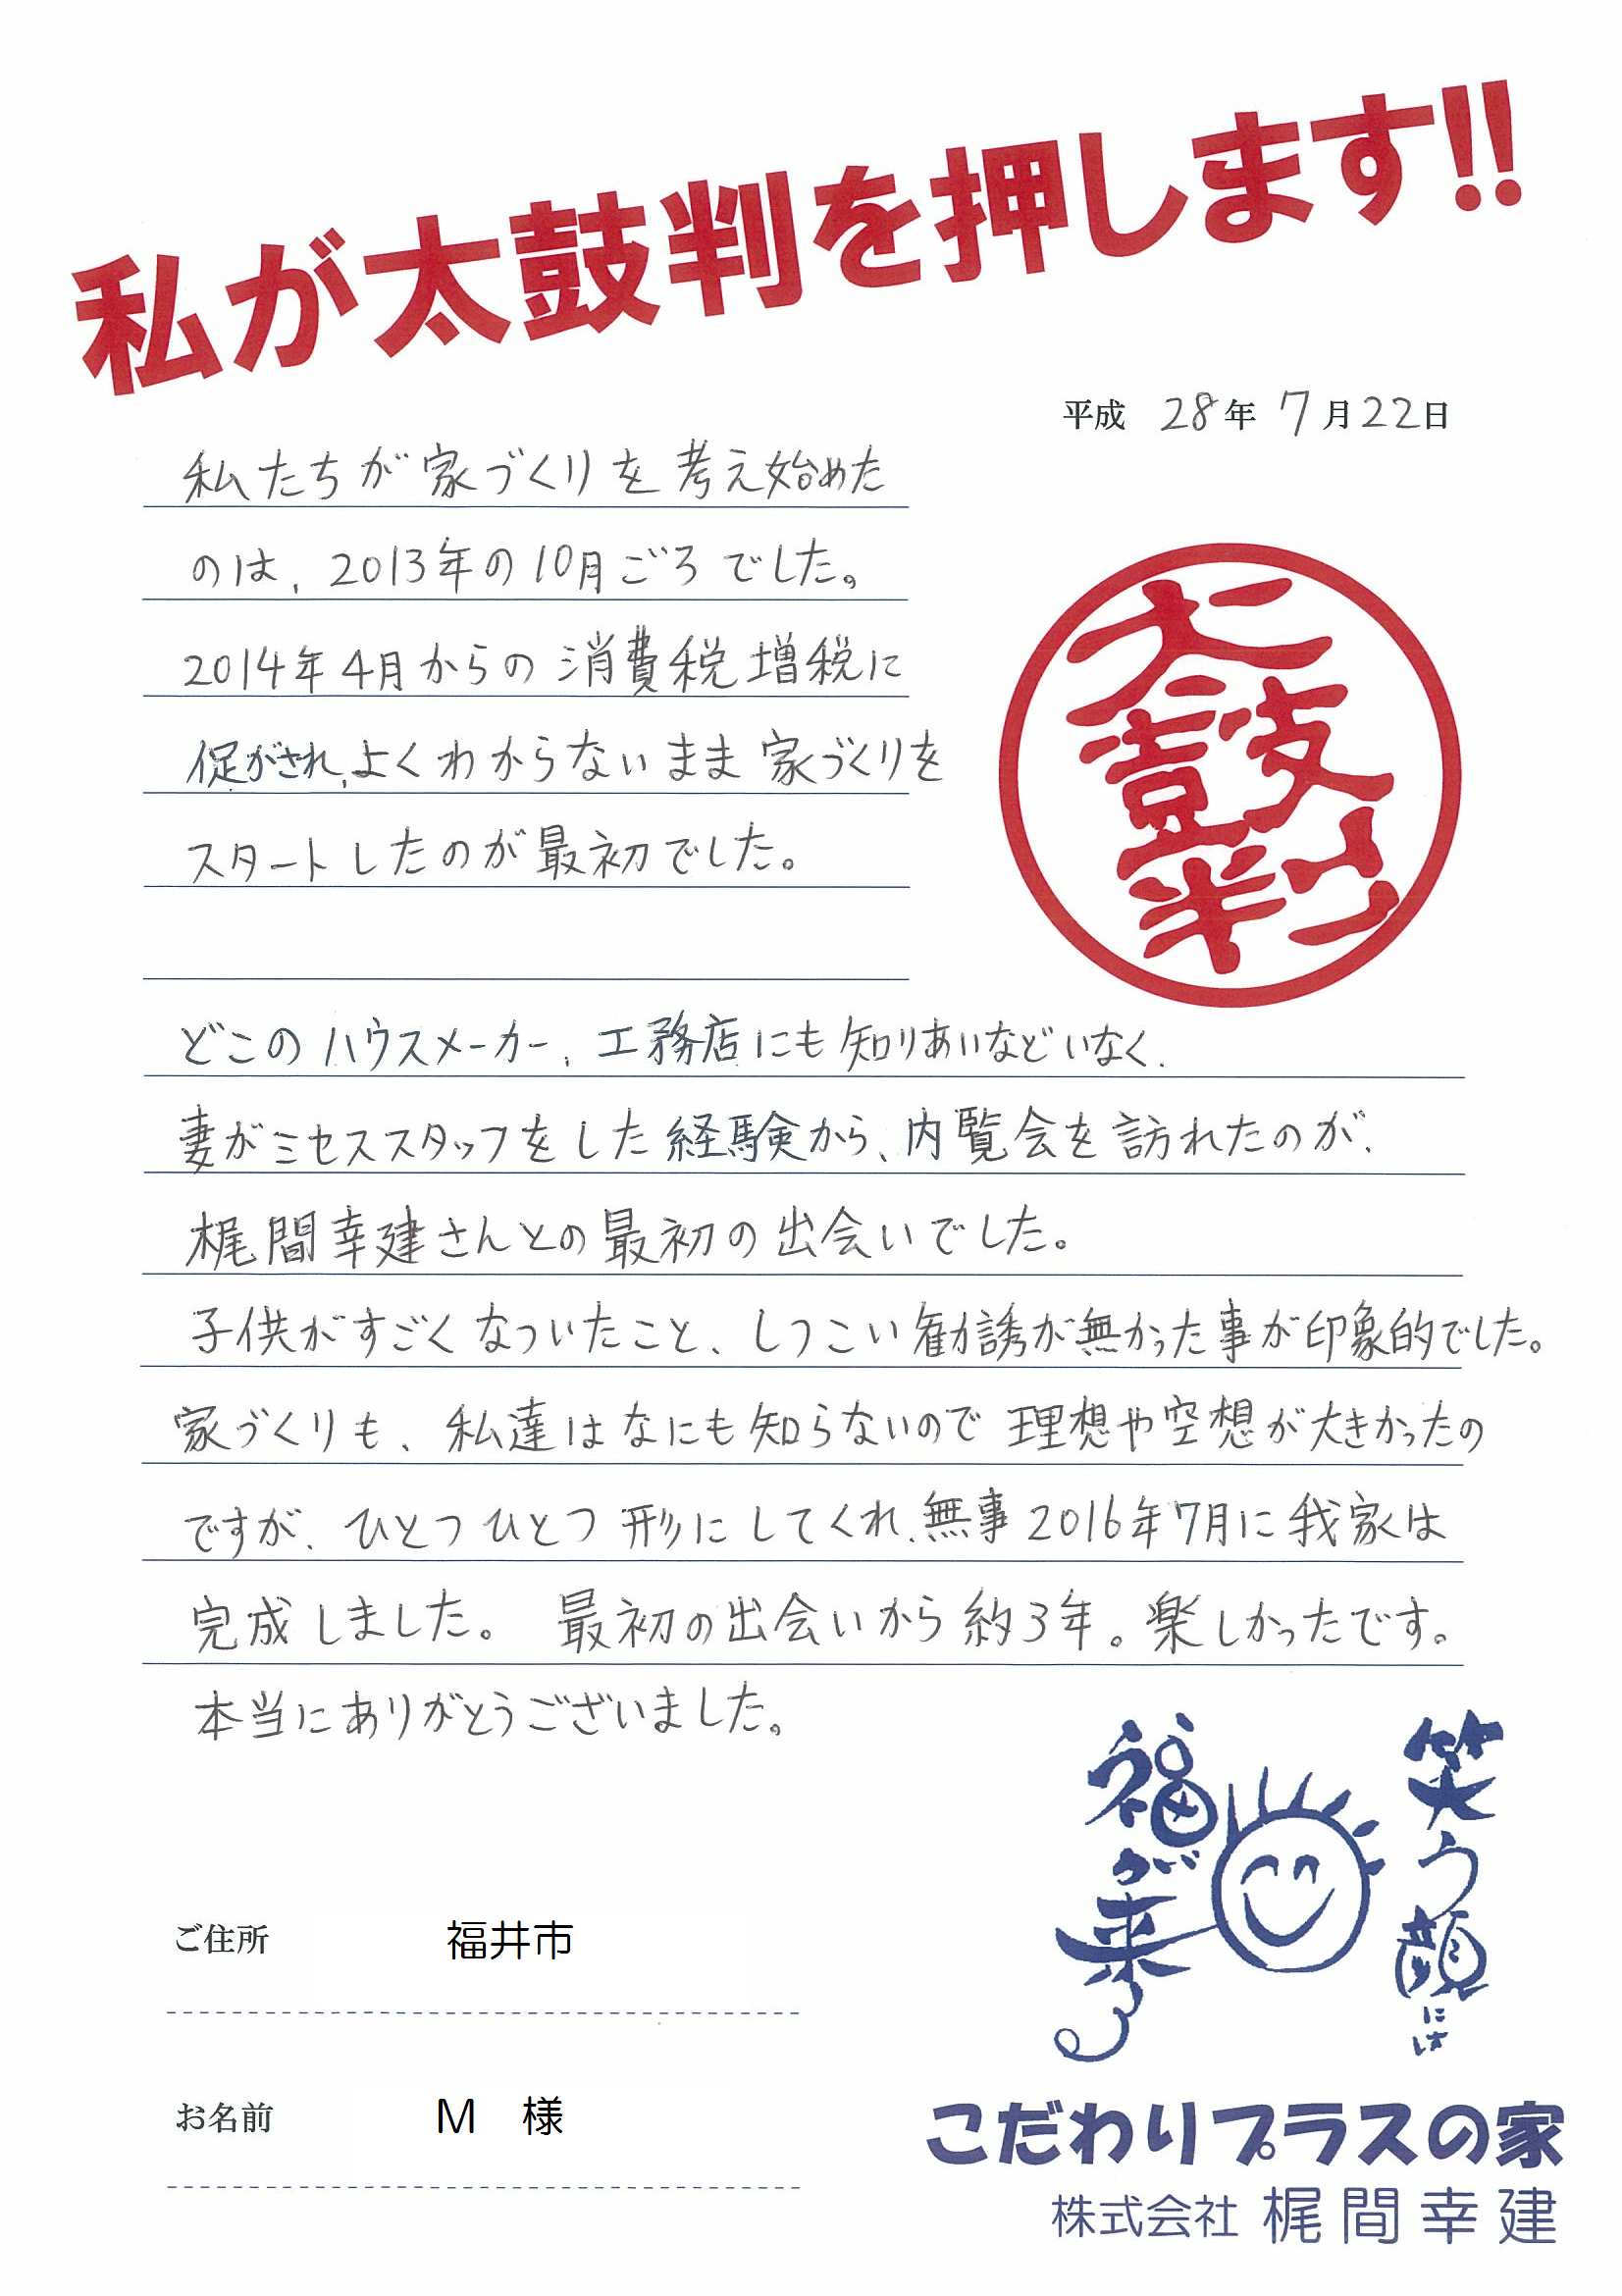 私が太鼓判を押します!!
平成 28年 7月22日
私たちが家づくりを考え始めた
のは、2013年の10月ごろでした。
2014年4月からの消費税増税に
促がされ、よくわからないまま家づくりを
スタートしたのが最初でした。
太鼓判
どこのハウスメーカー、工務店にも知りあいなどいなく、
妻がミセススタッフをした経験から、内覧会を訪れたのが、
梶間幸建さんとの最初の出会いでした。
子供がすごくなついたこと、しつこい勧誘が無かった事が印象的でした。
家づくりも、私達はなにも知らないので理想や空想が大きかったの
ですが、ひとつひとつ形にしてくれ、無事2016年7月に我家は
完成しました。 最初の出会いから約3年。楽しかったです。
本当にありがとうございました。
笑う顔には
福が来る
ご住所 福井市
お名前 M 様
こだわりプラスの家
株式会社 梶間幸建